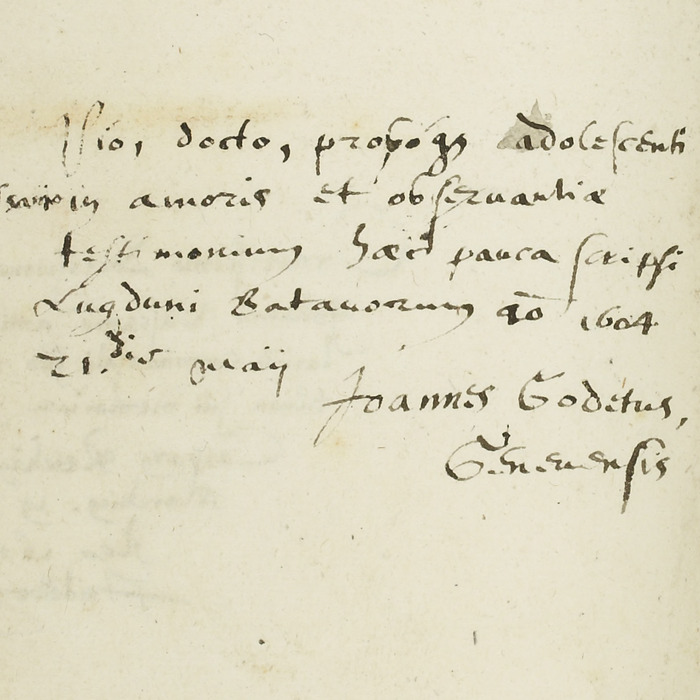 Pio, docto, probóqꝫ adolescenti
amoris et obseruantiæ
testimonium hæc pauca scripsi
Lugduni Batauorum ao 1604
21. die Maij
Joannes Godetus,
Geneuensis